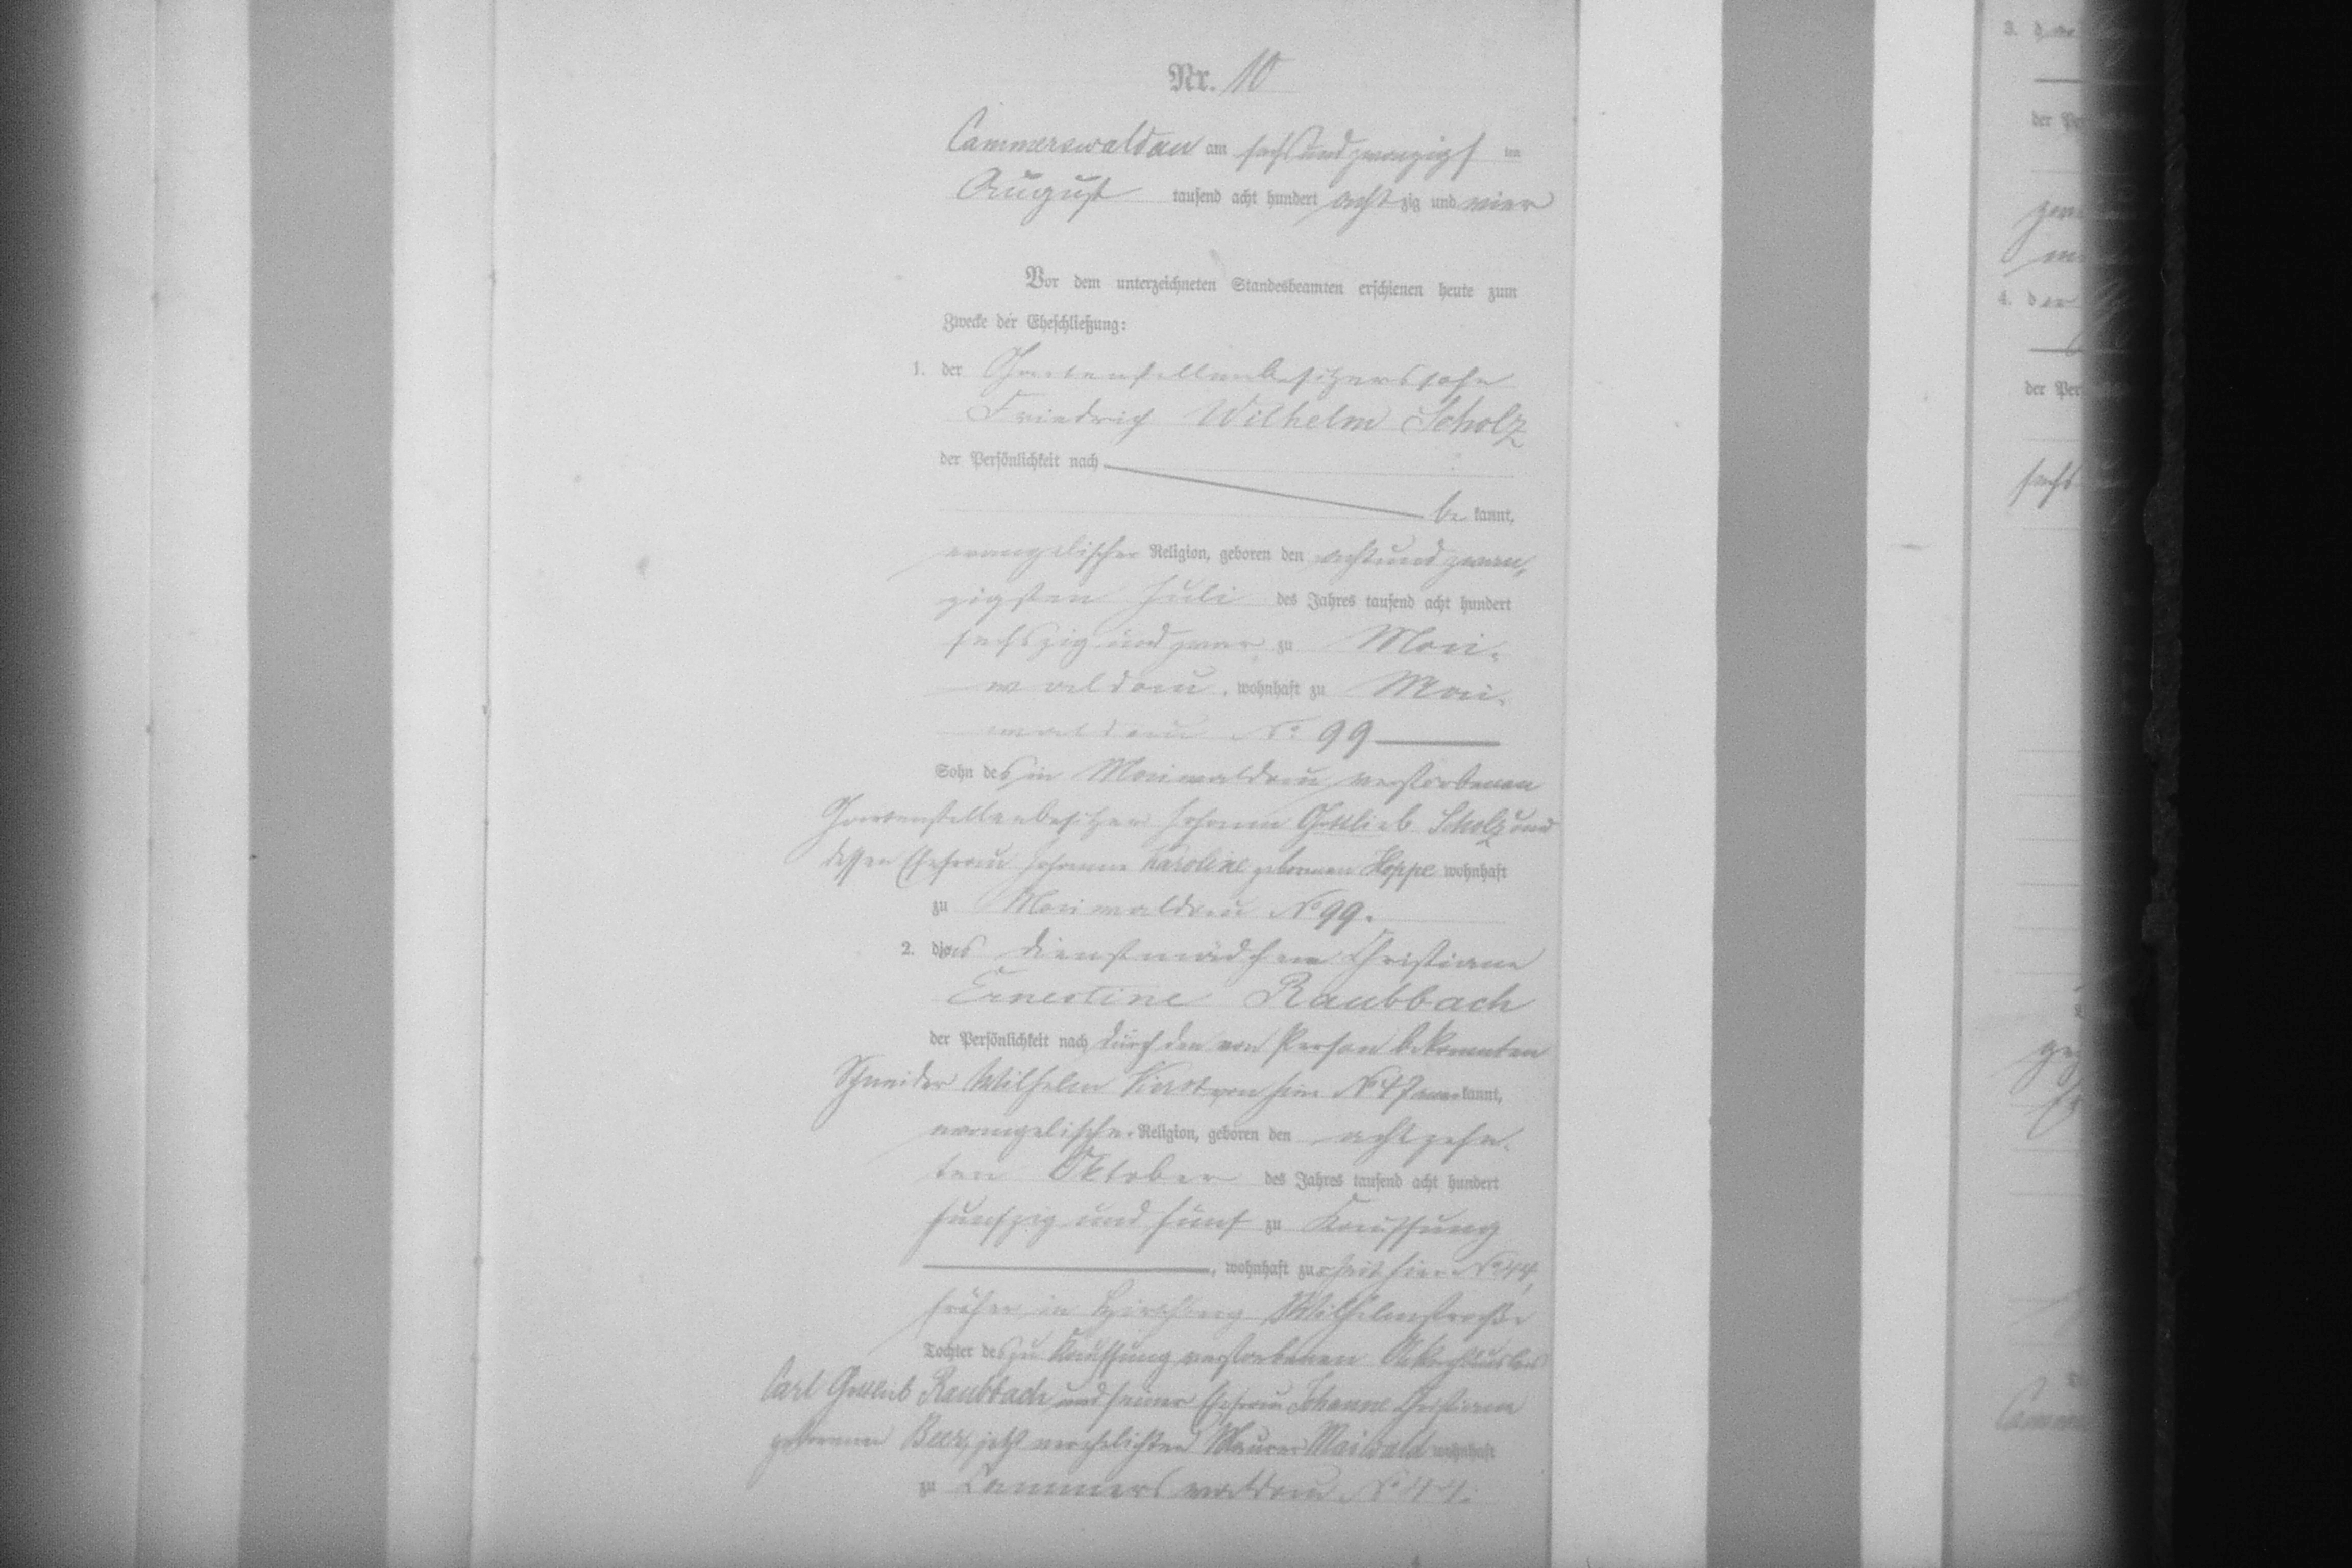 Nr. 10
Cammerswaldau am sechsundzwanzigsten
August tausend acht hundert achtzig und vier
Vor dem unterzeichneten Standesbeamten erschienen heute zum
Zwecke der Eheschließung:
1. der Gartenstellenbesitzerssohn
Friedrich Wilhelm Scholz
der Persönlichkeit nach
bekannt,
evangelischer Religion, geboren den achtundzwan-
zigsten Juli des Jahres tausend acht hundert
sechszig und zwar zu Mai-
waldau, wohnhaft zu Mai-
waldau No 99
Sohn des in Maiwaldau verstorbenen
Gartenstellenbesitzer Johann Gottlieb Scholz und
dessen Ehefrau Johanne Karoline geborenen Hoppe wohnhaft
zu Maiwaldau No 99.
2. das Dienstmädchen Christiane
Ernestine Raubbach
der Persönlichkeit nach durch den von Person bekannten
Schneider Wilhelm von hier No 47 anerkannt,
evangelischer Religion, geboren den achtzehn-
ten Oktober des Jahres tausend acht hundert
funfzig und fünf zu Kauffung
, wohnhaft zur Zeit hier No 44,
früher in Hirschberg Wilhelmstraße
Tochter des zu Kauffung verstorbenen
Carl Gottlieb Raubbach und seiner Ehefrau Johanne Christiane
geborenen Beer, jetzt verehelichten Maurer Maiwald wohnhaft
zu Cammerswaldau No 44.
3.
der Pe
4. der
der Per
sechs